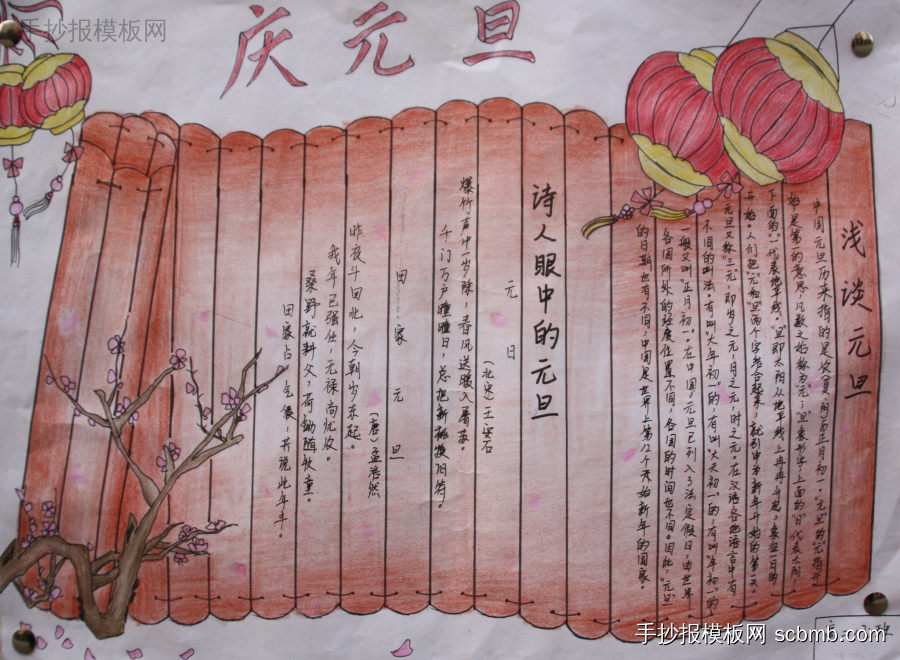 手抄报模板网
庆元旦
浅谈元旦
中国元旦历来指的是夏历正月初一。“元旦”的“元”指开
始是第一的意思,凡数之始称为“元”;旦象形字,上面的“日”代表太阳
下面的“一”代表地平线。“旦”即太阳从地平线上冉冉升起,象征一日的
开始。人们把“元”和“旦”两个字结合起来,就引申为新年开始的第一天。
元旦又称“三元”,即岁之元,月之元,时之元。在汉语各地语言中有
不同的叫法。有叫“大年初一”的,有叫“大天初一”的,有叫“年初一”的
一般又叫“正月初一”。在中国,元旦已列入了法定假日,由世界
各国所处的经度位置不同,各国的时间也不同。因此,“元旦
的日期也有不同,中国是世界上第12个开始新年的国家。
诗人眼中的元旦
元日
(北宋)王安石
爆竹声中一岁除,春风送暖入屠苏。
千门万户曈曈日,总把新桃换旧符。
田家元旦
(唐)孟浩然
昨夜斗回北,今朝岁东起。
我年已强仕,无禄尚忧农。
桑野就耕父,荷锄随牧童。
田家占气候,共说此年丰。
班
手抄报模板网 scbmb.com